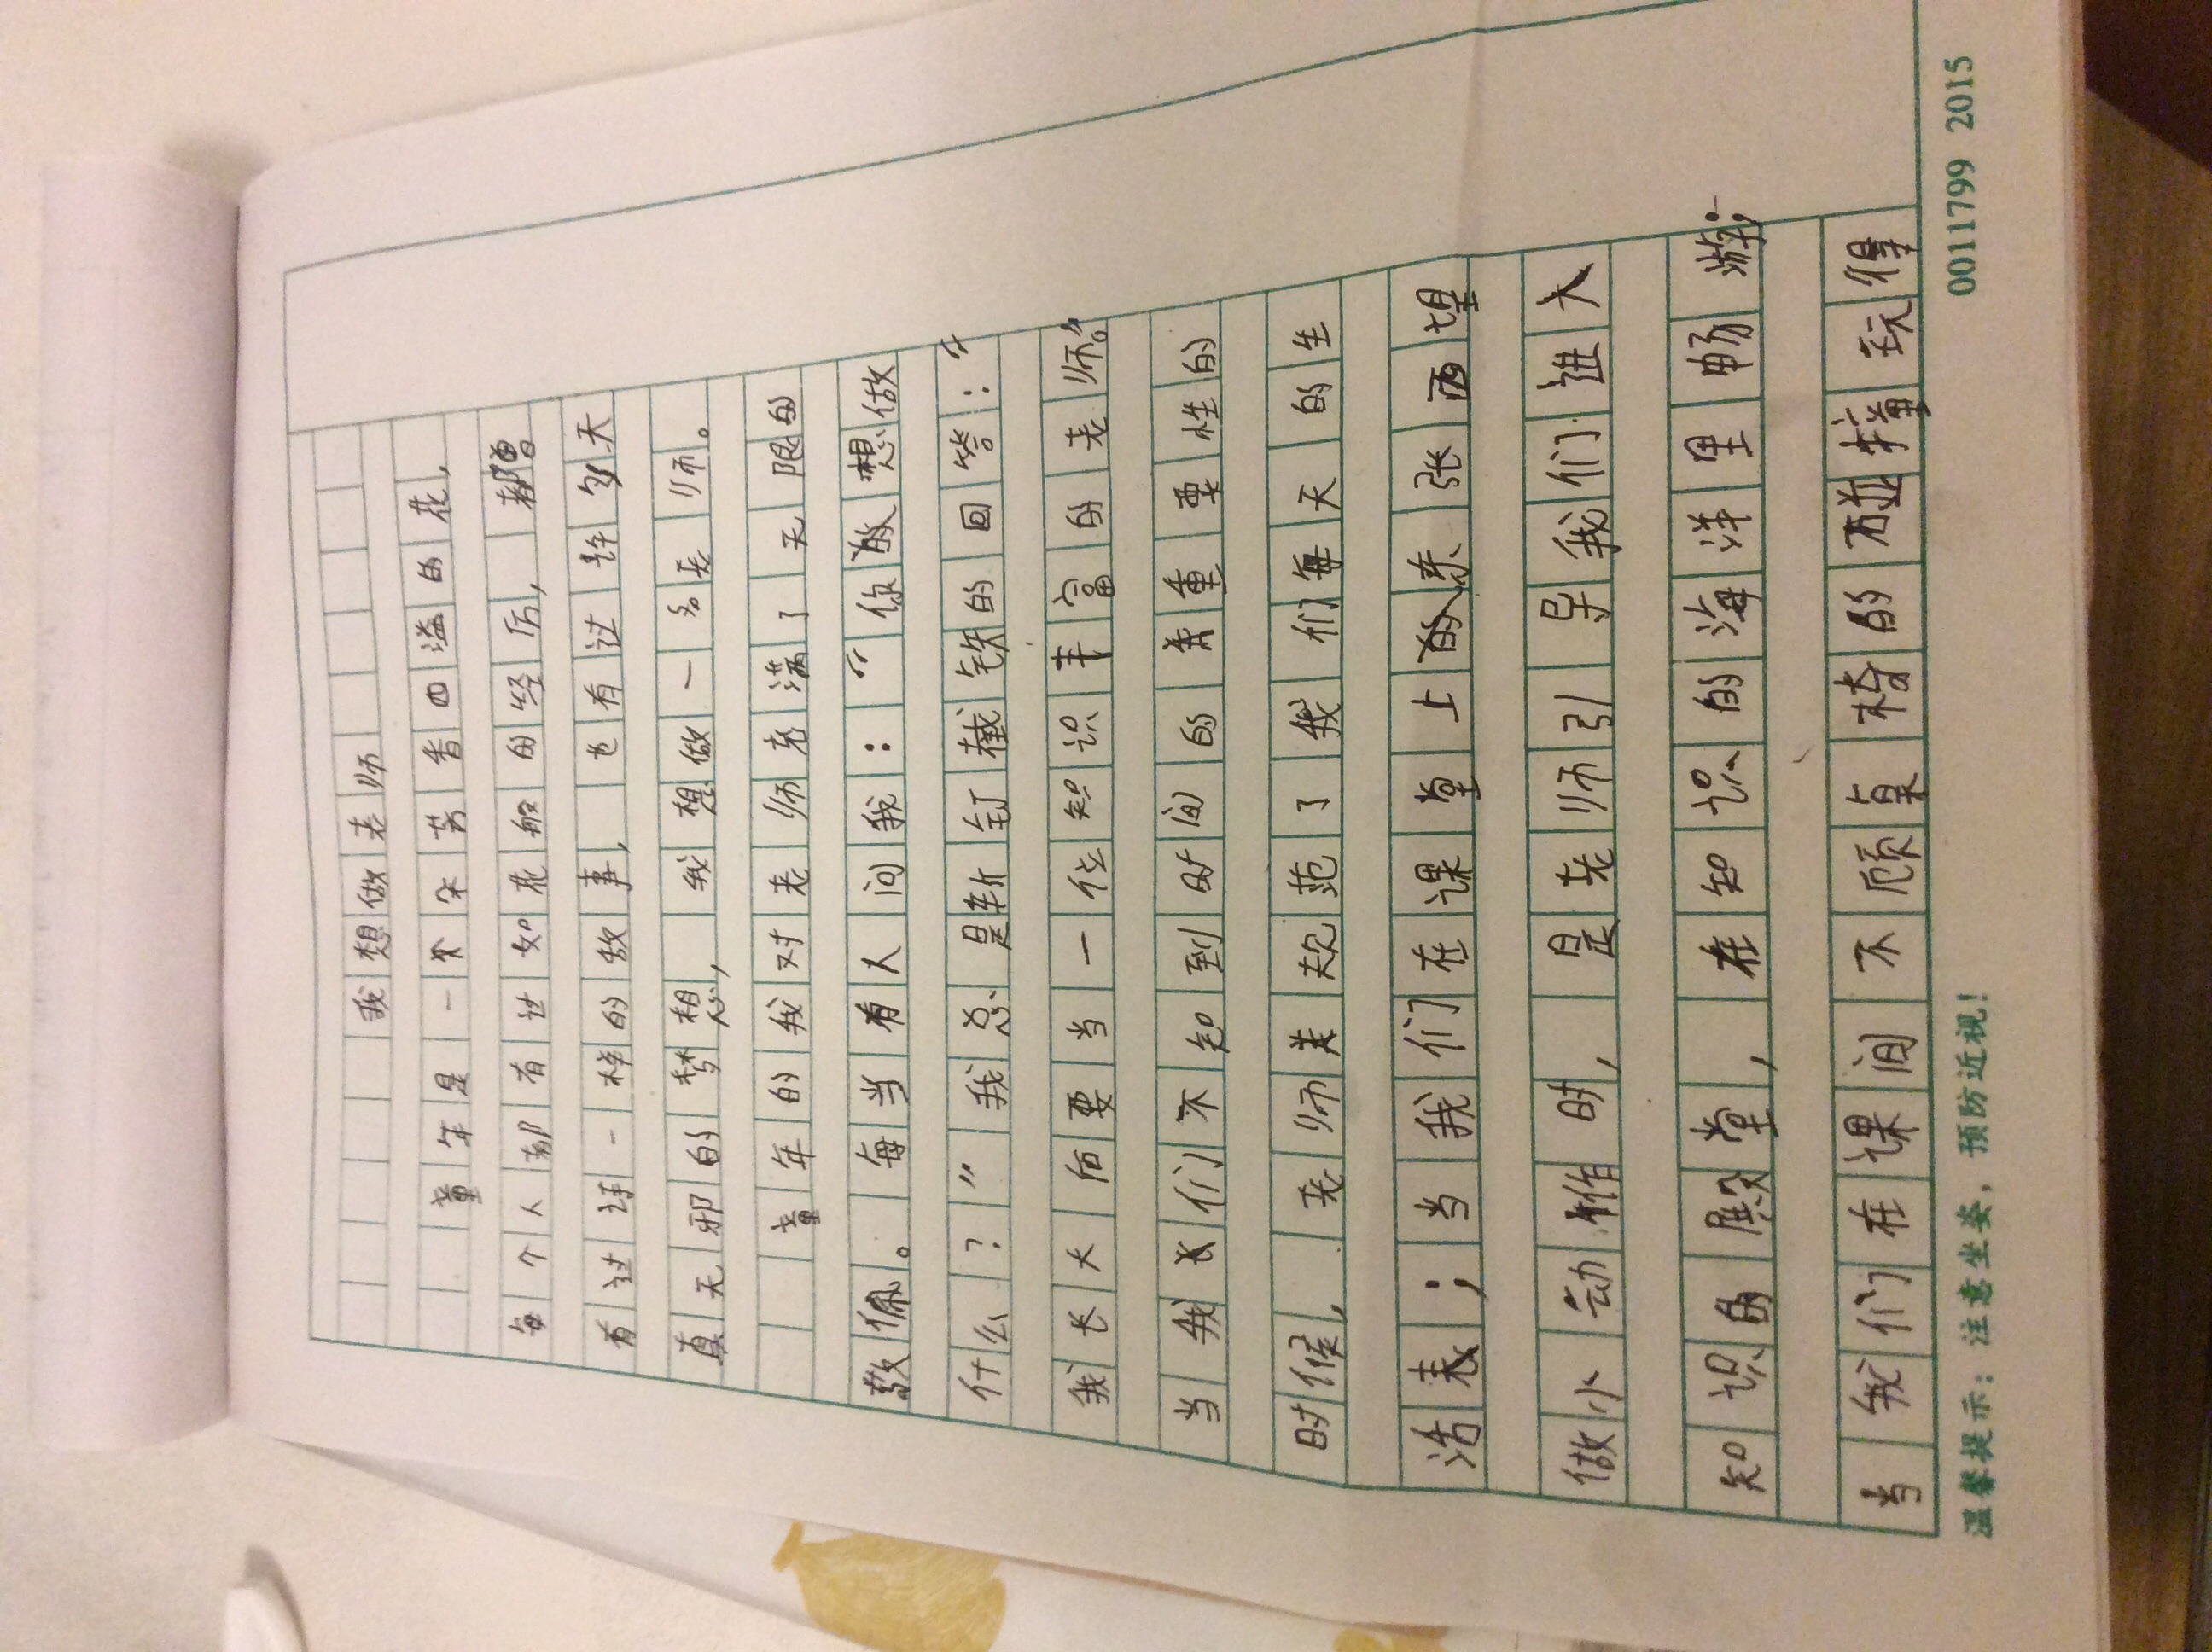 我想做老师
童年是一朵芳香四溢的花，
每个人都有过如花般的经历，都曾
有过诗一样的故事，也有过许多天
真无邪的梦想，我想做一名老师。
童年的我对老师充满了无限的
敬佩。每当有人问我：“你敢想做
什么？”我总是斩钉截铁的回答：“
我长大后要当一位知识丰富的老师。”
当我们不知到时间的重要性的
时候，老师规范了我们每天的生
活表；当我们在课堂上东张西望
做小动作时，是老师引导我们进入
知识的殿堂，在知识的海洋里畅游；
当我们在课间不顾桌椅的碰撞玩得
温馨提示：注意坐姿，预防近视！
0011799 2015